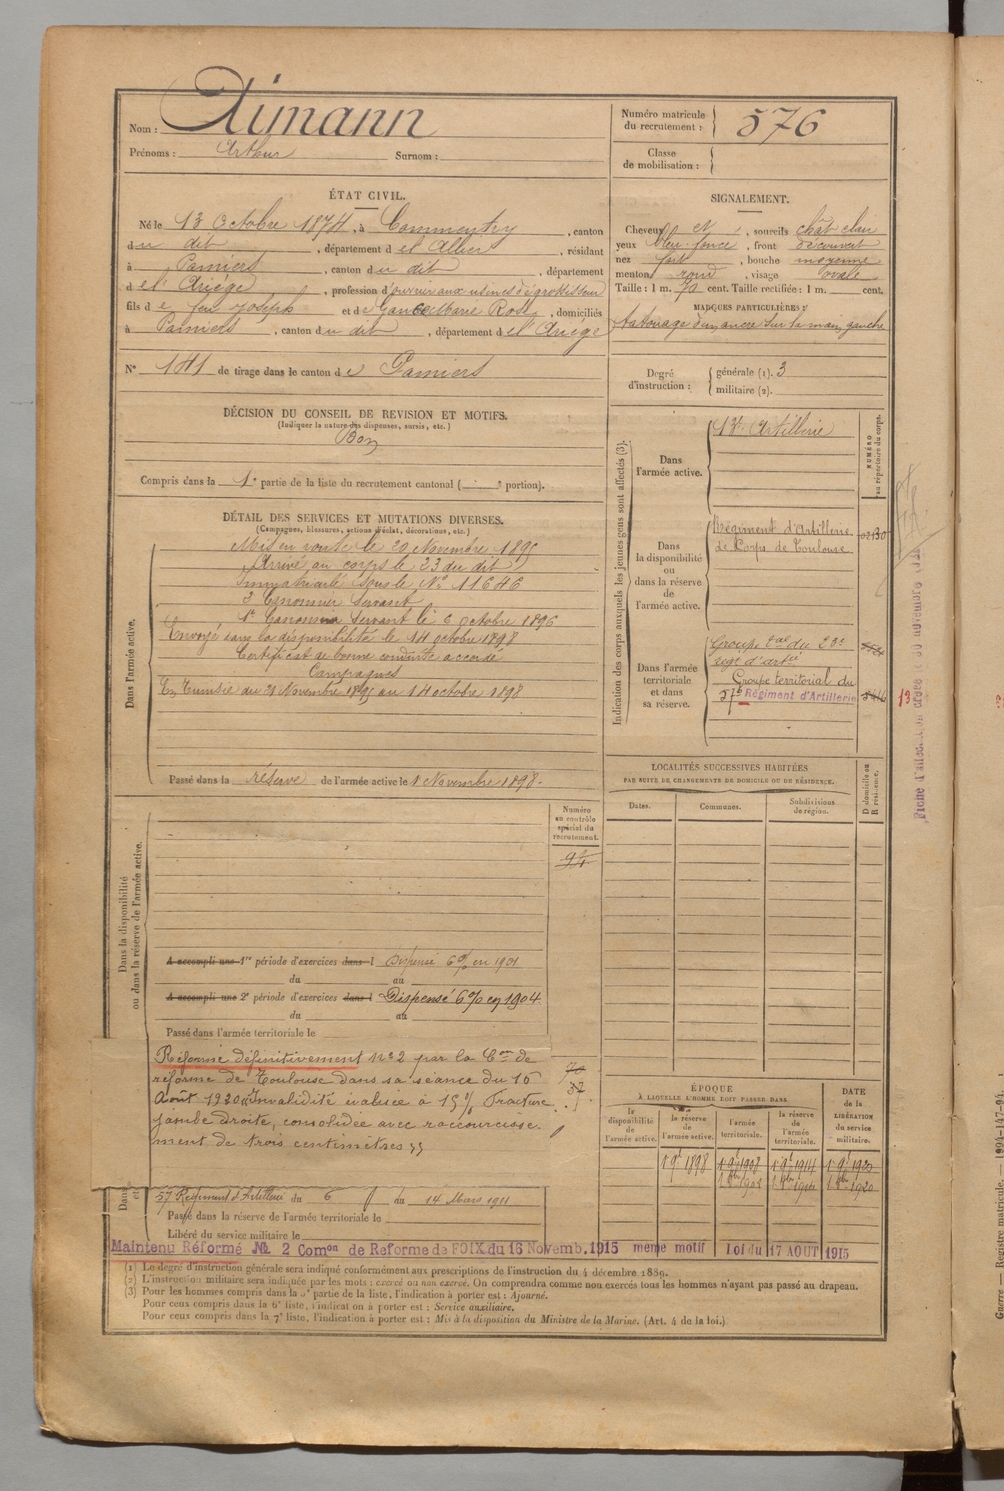 Nom : Aimann
Prénoms : Arthur Surnom :
Numéro matricule du recrutement : 576
Classe de mobilisation :
ÉTAT CIVIL.
Né le 13 Octobre 1874, à Commentry, canton
du dit, département de l'Allier, résidant
à Pamiers, canton du dit, département
de l'Ariège, profession d'ouvrier aux usines dégrossisseur
fils de feu Joseph et de Marie Rose, domiciliés
à Pamiers, canton du dit, département de l'Ariège
N° 141 de tirage dans le canton de Pamiers
SIGNALEMENT.
Cheveux et, sourcils chat clair
yeux bleu foncé, front découvert
nez fort, bouche moyenne
menton rond, visage ovale
Taille : 1 m. 70 cent. Taille rectifiée : 1 m. cent.
MARQUES PARTICULIÈRES :
tatouage d'un ancre sur la main gauche
Degré d'instruction : générale (1). 3
militaire (2).
DÉCISION DU CONSEIL DE REVISION ET MOTIFS.
(Indiquer la nature des dispenses, sursis, etc.)
Bon
Compris dans la 1e partie de la liste du recrutement cantonal ( e portion).
DÉTAIL DES SERVICES ET MUTATIONS DIVERSES.
(Campagnes, blessures, actions d'éclat, décorations, etc.)
Dans l'armée active.
Mis en route le 20 Novembre 1895
Arrivé au corps le 23 du dit
Immatriculé sous le N° 11646
2e Canonnier Servant
1er Canonnier Servant le 6 octobre 1896
Envoyé dans la disponibilité le 14 octobre 1898
Certificat de bonne conduite accordé
Campagnes
En Tunisie du 21 Novembre 1895 au 14 octobre 1898
Passé dans la réserve de l'armée active le 1 Novembre 1898.
Indication des corps auxquels les jeunes gens sont affectés (3).
NUMÉRO au répertoire du corps.
Dans l'armée active.
13e Artillerie
Dans la disponibilité ou dans la réserve de l'armée active.
Régiment d'Artillerie
de Corps de Toulouse
02130
Dans l'armée territoriale et dans sa réserve.
Groupe tal du 23e
régt d'artie
Groupe territorial du
57e Régiment d'Artillerie
LOCALITÉS SUCCESSIVES HABITÉES
PAR SUITE DE CHANGEMENTS DE DOMICILE OU DE RÉSIDENCE.
Dates. Communes. Subdivisions de région.
D domicile ou R résidence.
Numéro au contrôle spécial du recrutement.
Dans la disponibilité ou dans la réserve de l'armée active.
A accompli une 1re période d'exercices dans l Dispensé 6% en 1901
du au
A accompli une 2e période d'exercices dans l Dispensé 6% en 1904
du au
Passé dans l'armée territoriale le
Réformé définitivement n° 2 par la Con de
réforme de Toulouse dans sa séance du 16
Août 1920 "Invalidité évaluée à 15% Fracture
jambe droite, consolidée avec raccourcisse-
ment de trois centimètres"
57 Régiment d'Artillerie du 6 au 14 Mars 1911
Passé dans la réserve de l'armée territoriale le
Libéré du service militaire le
ÉPOQUE
À LAQUELLE L'HOMME DOIT PASSER DANS
la disponibilité de l'armée active.
la réserve de l'armée active.
l'armée territoriale.
la réserve de l'armée territoriale.
DATE de la LIBÉRATION du service militaire.
Maintenu Réformé N° 2 Comon de Reforme de FOIX du 16 Novemb. 1915 meme motif Loi du 17 AOUT 1915
(1) Le degré d'instruction générale sera indiqué conformément aux prescriptions de l'instruction du 4 décembre 1889.
(2) L'instruction militaire sera indiquée par les mots : exercé ou non exercé. On comprendra comme non exercés tous les hommes n'ayant pas passé au drapeau.
(3) Pour les hommes compris dans la 5e partie de la liste, l'indication à porter est : Ajourné.
Pour ceux compris dans la 6e liste, l'indication à porter est : Service auxiliaire.
Pour ceux compris dans la 7e liste, l'indication à porter est : Mis à la disposition du Ministre de la Marine. (Art. 4 de la loi.)
Guerre — Registre matricule. — 1994-147-94.